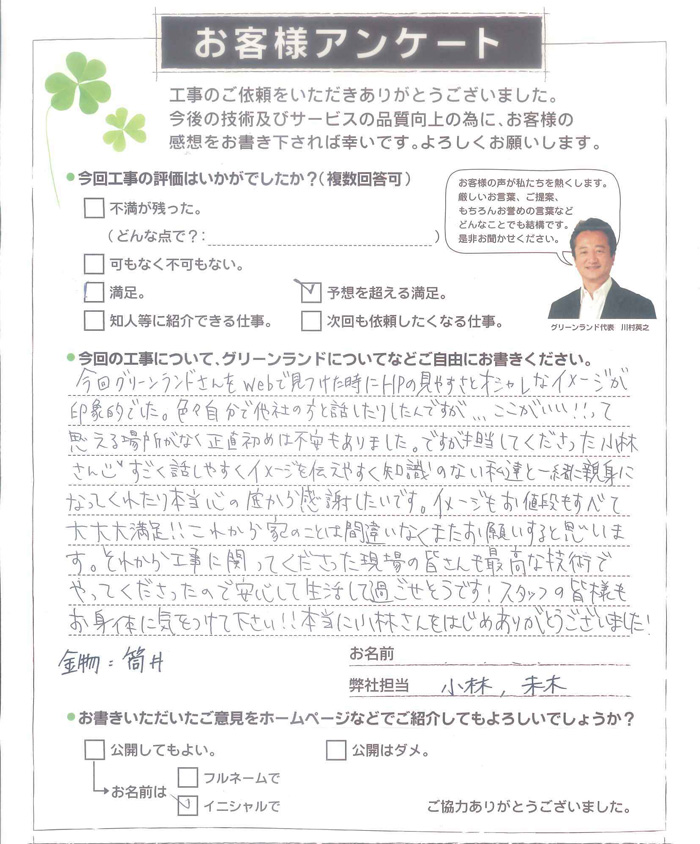 お客様アンケート
工事のご依頼をいただきありがとうございました。
今後の技術及びサービスの品質向上の為に、お客様の
感想をお書き下されば幸いです。よろしくお願いします。
●今回工事の評価はいかがでしたか?(複数回答可)
お客様の声が私たちを熱くします。
厳しいお言葉、ご提案、
もちろんお誉めの言葉など
どんなことでも結構です。
是非お聞かせください。
グリーンランド代表 川村英之
不満が残った。
(どんな点で?: )
可もなく不可もない。
満足。
予想を超える満足。
知人等に紹介できる仕事。
次回も依頼したくなる仕事。
●今回の工事について、グリーンランドについてなどご自由にお書きください。
今回グリーンランドさんをwebで見つけた時にHPの見やすさとオシャレなイメージが
印象的でした。色々自分で他社の方と話したりしたんですが、、、ここがいい!!って
思える場所がなく正直初めは不安もありました。ですが担当してくださった小林
さんがすごく話しやすくイメージも伝えやすく知識のない私達と一緒に親身に
なってくれたり本当心の底から感謝したいです。イメージもお値段もすべて
大大大満足!!これから家のことは間違いなくまたお願いすると思いま
す。それから工事に関ってくださった現場の皆さんも最高な技術で
やってくださったので安心して生活して過ごせそうです!スタッフの皆様も
お身体に気をつけて下さい!!本当に小林さんをはじめありがとうございました!
金物:筒井
お名前
弊社担当 小林,
●お書きいただいたご意見をホームページなどでご紹介してもよろしいでしょうか?
公開してもよい。
公開はダメ。
お名前は
フルネームで
イニシャルで
ご協力ありがとうございました。